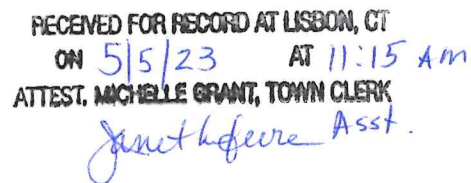 RECEIVED FOR RECORD AT LISBON, CT
ON 5/5/23 AT 11:15 AM
ATTEST. MICHELLE GRANT, TOWN CLERK
Janet Lefevre Asst.